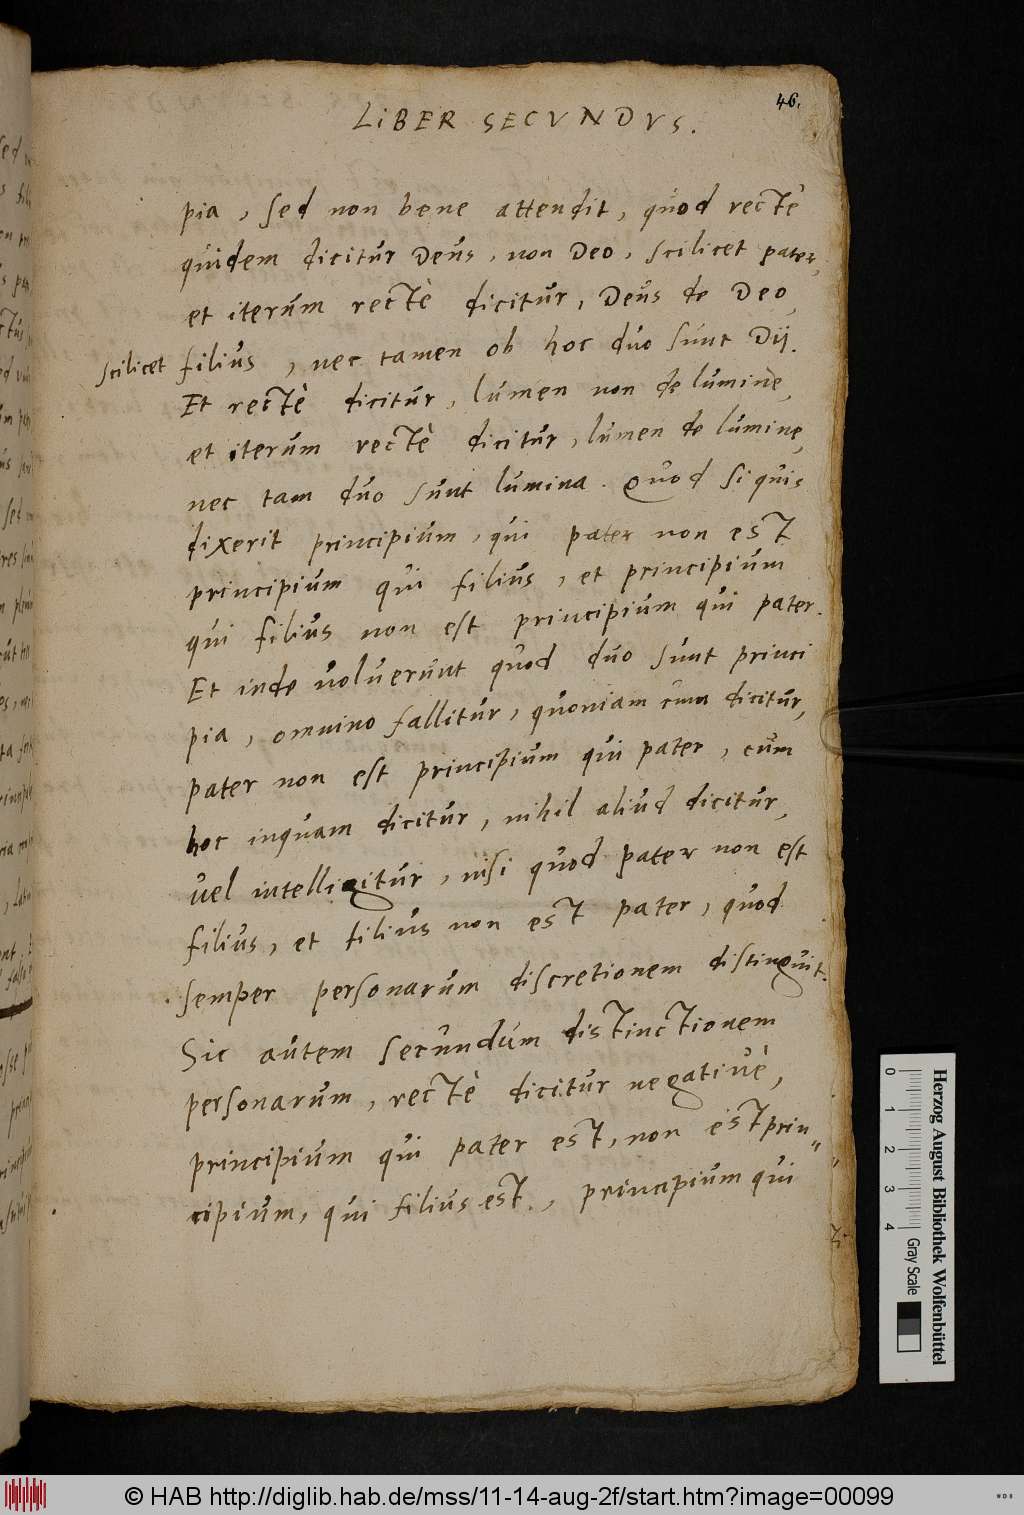 46.
LiBER SECVNDVS.
pia, sed non bene attendit, quod rectè
quidem dicitur Deus, non Deo, scilicet pater,
et iterum rectè dicitur, Deus de Deo,
scilicet filius, nec tamen ob hoc duo sunt Dij.
Et rectè dicitur, lumen non de lumine,
et iterum rectè dicitur, lumen de lumine,
nec tam duo sunt lumina. Quod si quis
dixerit principium, qui pater non est
principium qui filius, et principium
qui filius non est principium qui pater.
Et inde uoluerunt quod duo sunt princi
pia, omnino fallitur, quoniam cum dicitur,
pater non est principium qui pater, cum
hoc inquam dicitur, nihil aliud dicitur,
uel intelligitur, nisi quod pater non est
filius, et filius non est pater, quod
semper personarum discretionem distinguit.
Sic autem secundum distinctionem
personarum, rectè dicitur negatiuè,
principium qui pater est, non est prin"
cipium, qui filius est., principium qui
0 1 2 3 4 Gray Scale
Herzog August Bibliothek Wolfenbüttel
© HAB http://diglib.hab.de/mss/11-14-aug-2f/start.htm?image=00099